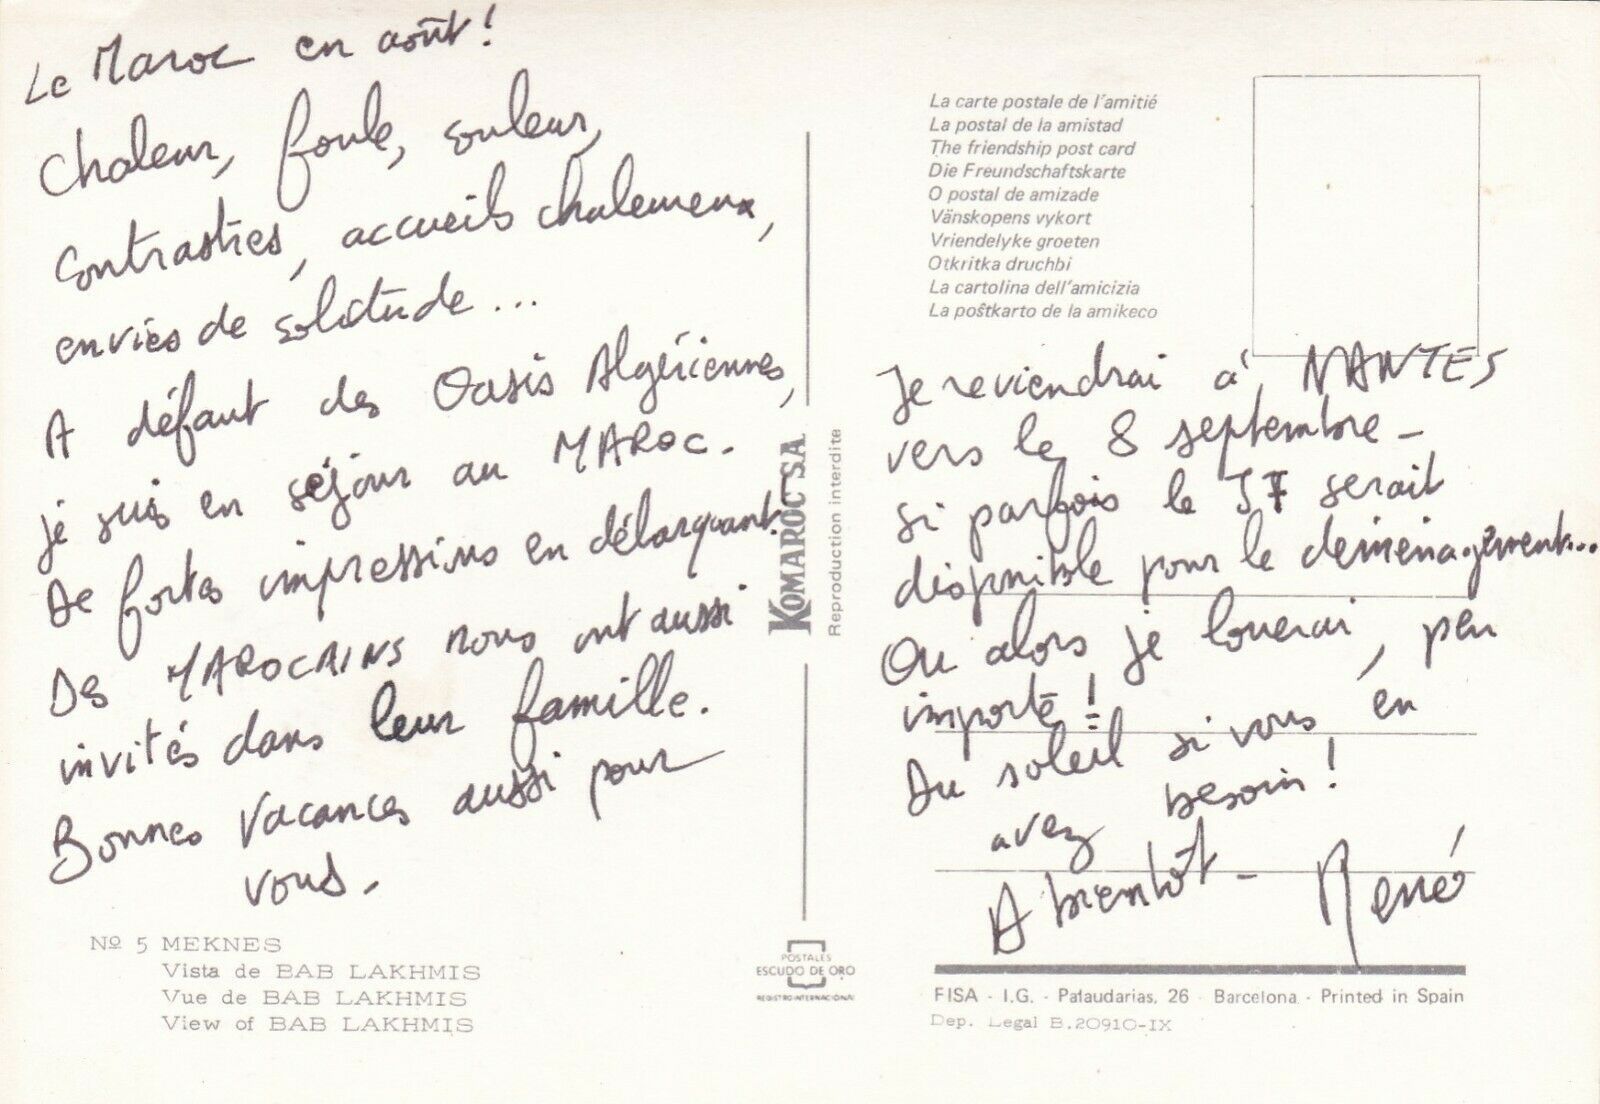 Le Maroc en août!
Chaleur, foule, couleur,
Contrastes, accueils chaleureux,
envies de solitude...
A défaut des Oasis Algériennes,
je suis en séjour au MAROC.
De fortes impressions en débarquant.
Des MAROCAINS nous ont aussi
invités dans leur famille.
Bonnes vacances aussi pour
vous.
Nº 5 MEKNES
Vista de BAB LAKHMIS
Vue de BAB LAKHMIS
View of BAB LAKHMIS
KOMAROC S.A.
Reproduction interdite
POSTALES
ESCUDO DE ORO
REGISTRO INTERNACIONAL
La carte postale de l'amitié
La postal de la amistad
The friendship post card
Die Freundschaftskarte
O postal de amizade
Vänskopens vykort
Vriendelyke groeten
Otkritka druchbi
La cartolina dell'amicizia
La poŝtkarto de la amikeco
Je reviendrai à NANTES
vers le 8 septembre -
si parfois le J7 serait
disponible pour le déménagement...
Ou alors je louerai, peu
importe!
Du soleil si vous en
avez besoin!
A bientôt - René
FISA - I.G. - Palaudarias, 26 - Barcelona - Printed in Spain
Dep. Legal B.20910-IX